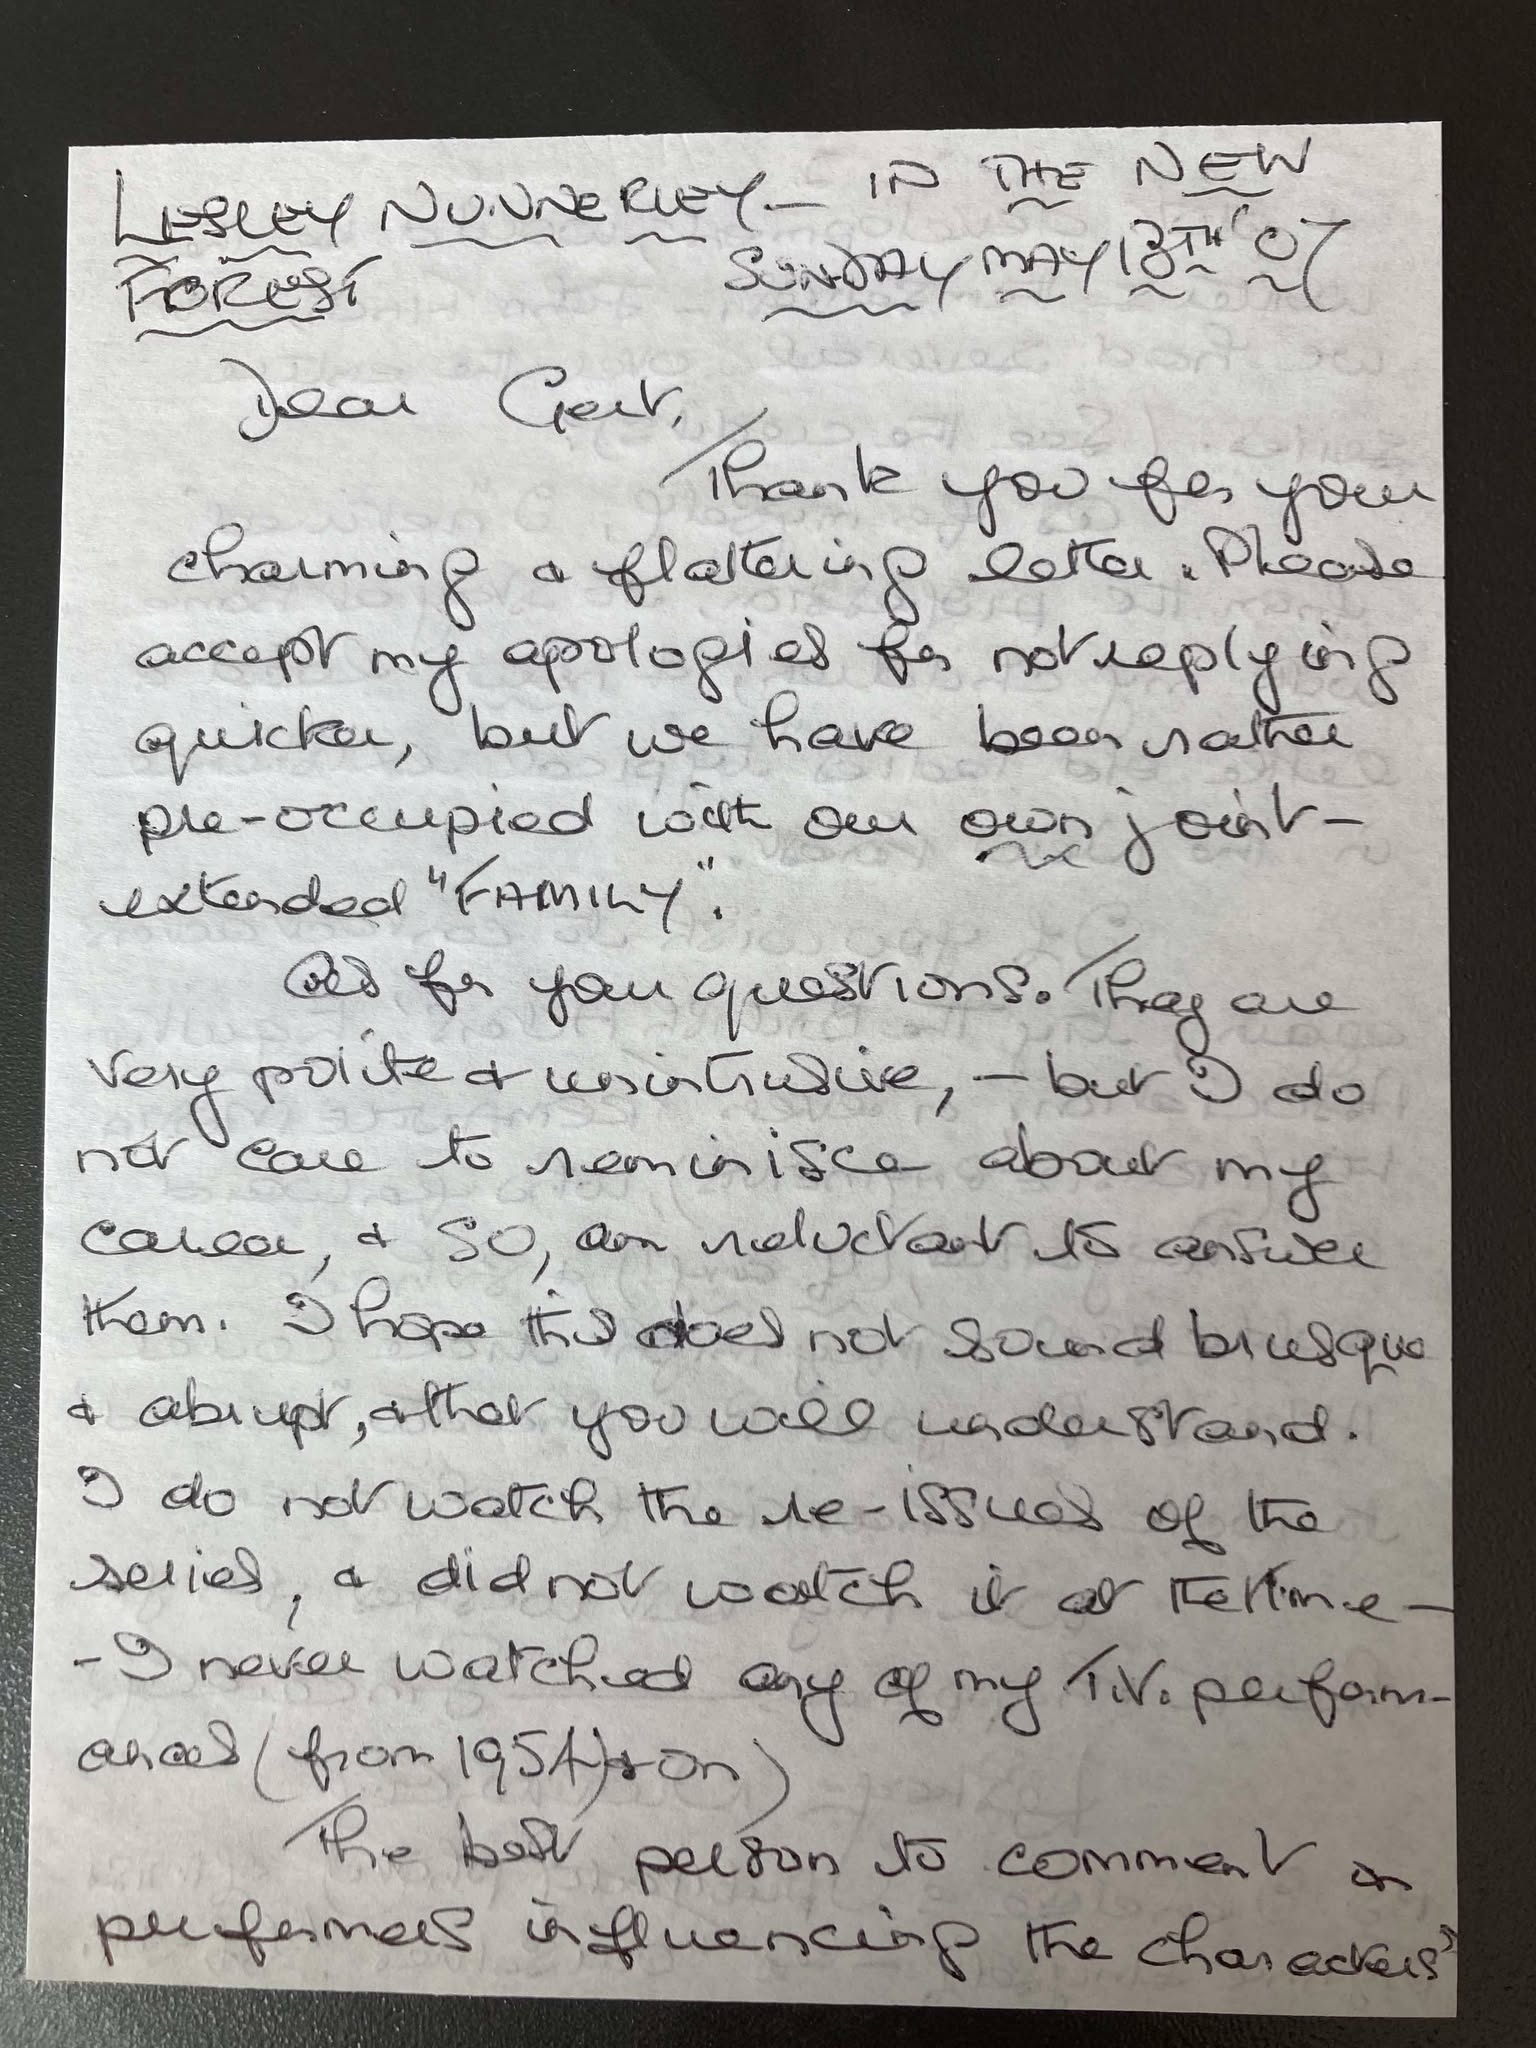 LESLEY NUNNERLEY - IN THE NEW
FOREST
SUNDAY MAY 13TH '07
Dear Gert,
Thank you for your
charming & flattering letter. Please
accept my apologies for not replying
quicker, but we have been rather
pre-occupied with our own joint-
extended "FAMILY".
As for your questions. They are
very polite & unintrusive, - but I do
not care to reminisce about my
career, & so, am reluctant to answer
them. I hope this does not sound brusque
& abrupt, & that you will understand.
I do not watch the re-issues of the
series, & did not watch it at the time -
- I never watched any of my T.V. perform-
ances (from 1954) & on)
The best person to comment on
performers influencing the characters'